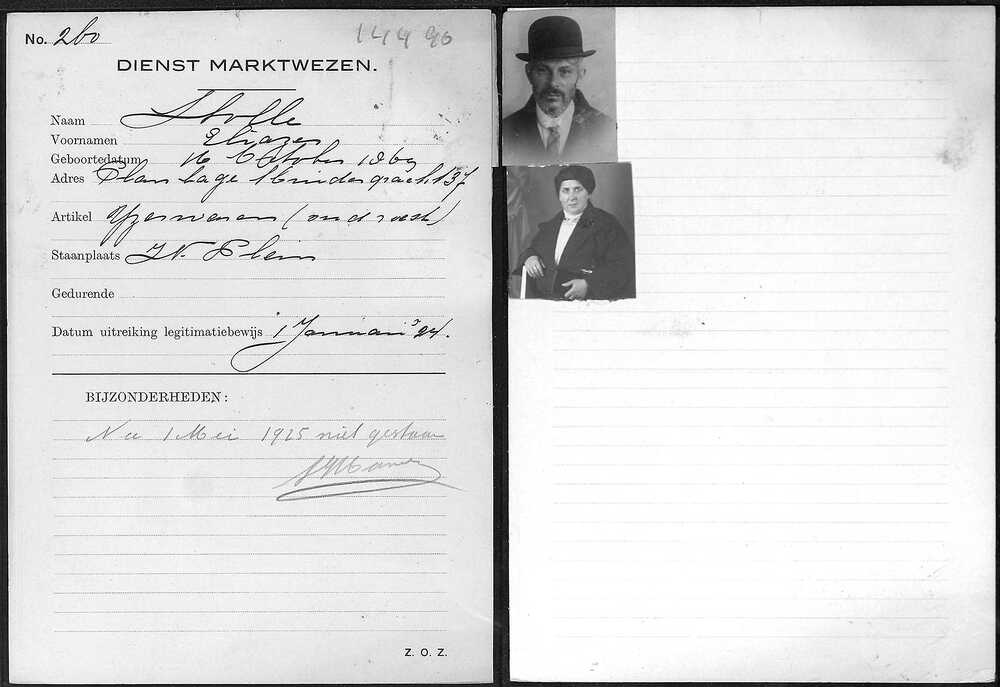 No. 260
144 96
DIENST MARKTWEZEN.
Naam Stolle
Voornamen Eliazer
Geboortedatum 16 October 186
Adres Plantage Muidergracht 37
Artikel IJzerwaren (oud roest)
Staanplaats W. Plein
Gedurende
Datum uitreiking legitimatiebewijs 1 Januari '24.
BIJZONDERHEDEN:
Na 1 Mei 1925 niet gestaan
Z. O. Z.